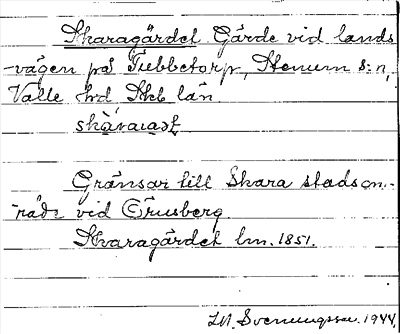 Skaragärdet Gärde vid lands
-vägen på Tubbetorp, Stenum s:n,
Valle hrd Skb län
Gränsar till Skara stadsom-
råde vid Örusberg.
Skaragärdet lm. 1851.
Svenungsson. 1944.